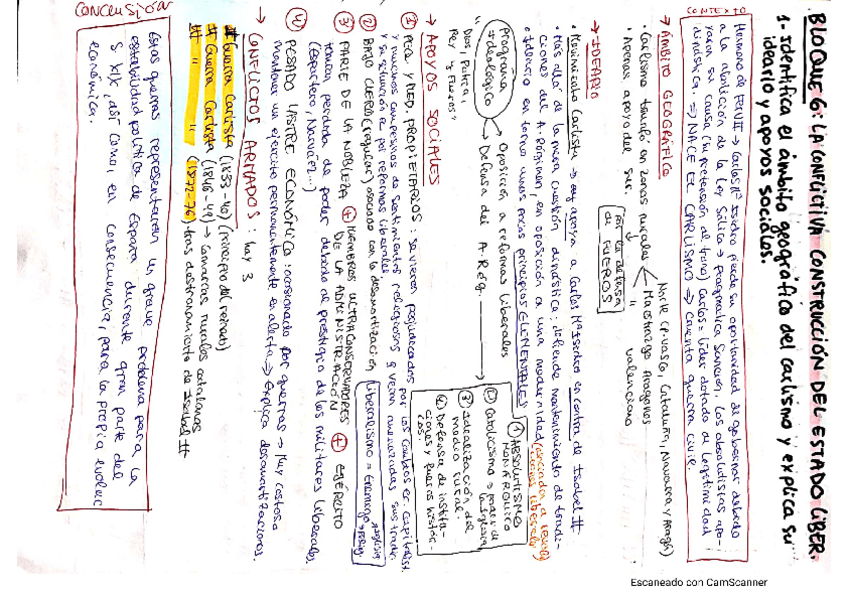 BLOQUE 6: LA CONFLICTIVA CONSTRUCCIÓN DEL ESTADO LIBER.
1- Identifica el ámbito geográfico del carlismo y explica su
ideario y apoyos sociales.
CONTEXTO
Hermano de Fern VII → Carlos Mª Isidro pierde su oportunidad de gobernar debido
a la abolición de la Ley Sálica → Pragmática Sanción. Los absolutistas apo-
yarán su causa (su pretensión al trono) Carlos: líder dotado de legitimidad
dinástica. ⇒ NACE EL CARLISMO ⇒ cruenta guerra civil
→ ÁMBITO GEOGRÁFICO
Norte (P. Vasco, Cataluña, Navarra y Aragón)
· Carlismo triunfó en zonas rurales
Maestrazgo Aragonés
" valenciano
· Apenas apoyo del sur.
por la defensa
de FUEROS
→ IDEARIO
· Movimiento Carlista → apoya a Carlos Mª Isidro en contra de Isabel II
· Más allá de la mera cuestión dinástica: defiende mantenimiento de tradi-
ciones del A. Régimen, en oposición a una modernidad
· Ideario en torno unos principios
Programa
Ideológico
Oposición a reformas liberales
Defensa del A. Rég.
" Dios, Patria,
Rey y Fueros"
① ABSOLUTISMO
MONÁRQUICO
② Catolicismo → poder de
la Iglesia
③ Idealización del
medio rural.
④ Defensa de institu-
ciones y fueros históri-
cos.
→ APOYOS SOCIALES
① PEQ. Y MED. PROPIETARIOS: se vieron perjudicados por los cambios el capitalis.
y muchos campesinos de sentimientos religiosos y veían amenazadas sus tradic.
y su situación x las reformas liberales
② BAJO CLERO (regular) asociados con la desamortización
Liberalismo = Enemigo
③ PARTE DE LA NOBLEZA + MIEMBROS ULTRACONSERVADORES
DE LA ADMINISTRACIÓN + EJÉRCITO
pérdida de poder debido al prestigio de los militares liberales
(Espartero, Narváez...)
④ PESADO LASTRE ECONÓMICO: ocasionado por guerras → Muy costoso
mantener un ejército permanentemente en alerta → Explica desamortizaciones.
→ CONFLICTOS ARMADOS: hay 3
I Guerra Carlista (1833-40) (principio del reinado)
II Guerra Carlista (1846-49) → Comarcas rurales catalanas
III " " (1872-76) tras destronamiento de Isabel II
CONCLUSIÓN
Estas guerras representarán un grave problema para la
estabilidad política de España durante gran parte del
S XIX, así como, en consecuencia, para la propia evoluc
económica.
Escaneado con CamScanner